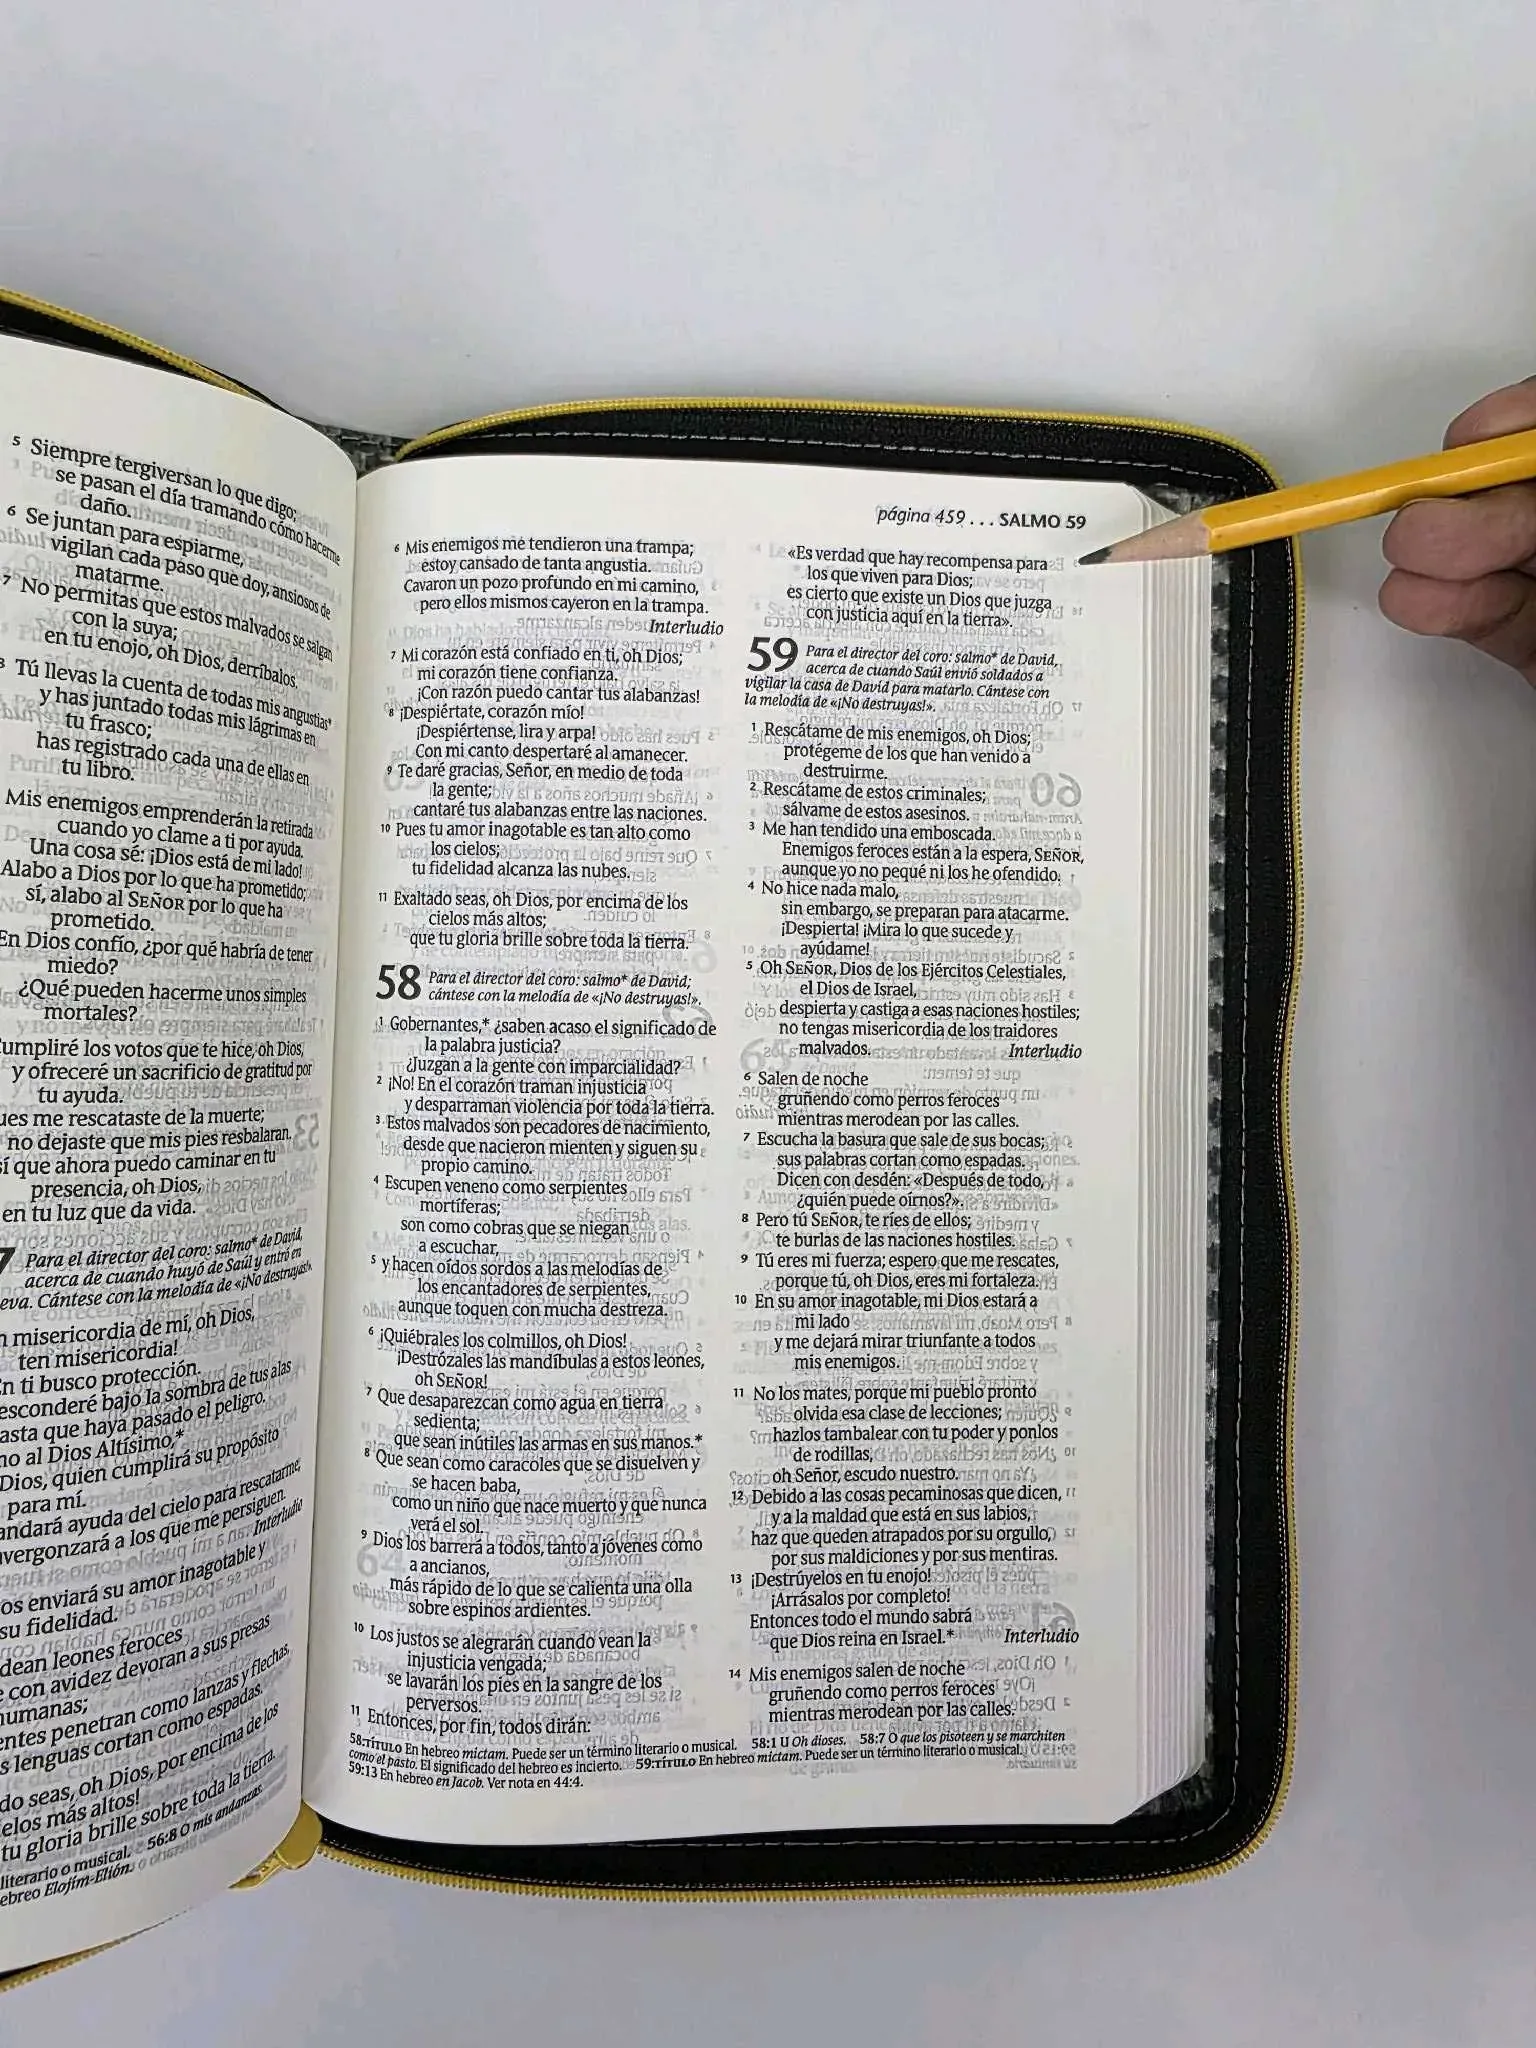 5 Siempre tergiversan lo que digo;
se pasan el día tramando cómo hacerme
daño.
6 Se juntan para espiarme,
vigilan cada paso que doy, ansiosos de
matarme.
7 No permitas que estos malvados se salgan
con la suya;
en tu enojo, oh Dios, derríbalos.
8 Tú llevas la cuenta de todas mis angustias*
y has juntado todas mis lágrimas en
tu frasco;
has registrado cada una de ellas en
tu libro.
Mis enemigos emprenderán la retirada
cuando yo clame a ti por ayuda.
Una cosa sé: ¡Dios está de mi lado!
Alabo a Dios por lo que ha prometido;
sí, alabo al SEÑOR por lo que ha
prometido.
En Dios confío, ¿por qué habría de tener
miedo?
¿Qué pueden hacerme unos simples
mortales?
Cumpliré los votos que te hice, oh Dios,
y ofreceré un sacrificio de gratitud por
tu ayuda.
ues me rescataste de la muerte;
no dejaste que mis pies resbalaran.
sí que ahora puedo caminar en tu
presencia, oh Dios,
en tu luz que da vida.
7 Para el director del coro: salmo* de David,
acerca de cuando huyó de Saúl y entró en
eva. Cántese con la melodía de «¡No destruyas!».
n misericordia de mí, oh Dios,
ten misericordia!
En ti busco protección.
esconderé bajo la sombra de tus alas
asta que haya pasado el peligro.
mo al Dios Altísimo,*
Dios, quien cumplirá su propósito
para mí.
andará ayuda del cielo para rescatarme,
avergonzará a los que me persiguen.
Interludio
os enviará su amor inagotable y
su fidelidad.
dean leones feroces
e con avidez devoran a sus presas
humanas;
entes penetran como lanzas y flechas,
s lenguas cortan como espadas.
do seas, oh Dios, por encima de los
ielos más altos!
tu gloria brille sobre toda la tierra.
literario o musical. 56:8 O mis andanzas.
ebreo Elojim-Elión.
página 459 . . . SALMO 59
6 Mis enemigos me tendieron una trampa;
estoy cansado de tanta angustia.
Cavaron un pozo profundo en mi camino,
pero ellos mismos cayeron en la trampa.
Interludio
7 Mi corazón está confiado en ti, oh Dios;
mi corazón tiene confianza.
¡Con razón puedo cantar tus alabanzas!
8 ¡Despiértate, corazón mío!
¡Despiértense, lira y arpa!
Con mi canto despertaré al amanecer.
9 Te daré gracias, Señor, en medio de toda
la gente;
cantaré tus alabanzas entre las naciones.
10 Pues tu amor inagotable es tan alto como
los cielos;
tu fidelidad alcanza las nubes.
11 Exaltado seas, oh Dios, por encima de los
cielos más altos;
que tu gloria brille sobre toda la tierra.
58 Para el director del coro: salmo* de David;
cántese con la melodía de «¡No destruyas!».
1 Gobernantes,* ¿saben acaso el significado de
la palabra justicia?
¿Juzgan a la gente con imparcialidad?
2 ¡No! En el corazón traman injusticia
y desparraman violencia por toda la tierra.
3 Estos malvados son pecadores de nacimiento,
desde que nacieron mienten y siguen su
propio camino.
4 Escupen veneno como serpientes
mortíferas;
son como cobras que se niegan
a escuchar,
5 y hacen oídos sordos a las melodías de
los encantadores de serpientes,
aunque toquen con mucha destreza.
6 ¡Quiébrales los colmillos, oh Dios!
¡Destrózales las mandíbulas a estos leones,
oh SEÑOR!
7 Que desaparezcan como agua en tierra
sedienta;
que sean inútiles las armas en sus manos.*
8 Que sean como caracoles que se disuelven y
se hacen baba,
como un niño que nace muerto y que nunca
verá el sol.
9 Dios los barrerá a todos, tanto a jóvenes como
a ancianos,
más rápido de lo que se calienta una olla
sobre espinos ardientes.
10 Los justos se alegrarán cuando vean la
injusticia vengada;
se lavarán los pies en la sangre de los
perversos.
11 Entonces, por fin, todos dirán:
«Es verdad que hay recompensa para
los que viven para Dios;
es cierto que existe un Dios que juzga
con justicia aquí en la tierra».
59 Para el director del coro: salmo* de David,
acerca de cuando Saúl envió soldados a
vigilar la casa de David para matarlo. Cántese con
la melodía de «¡No destruyas!».
1 Rescátame de mis enemigos, oh Dios;
protégeme de los que han venido a
destruirme.
2 Rescátame de estos criminales;
sálvame de estos asesinos.
3 Me han tendido una emboscada.
Enemigos feroces están a la espera, SEÑOR,
aunque yo no pequé ni los he ofendido.
4 No hice nada malo,
sin embargo, se preparan para atacarme.
¡Despierta! ¡Mira lo que sucede y
ayúdame!
5 Oh SEÑOR, Dios de los Ejércitos Celestiales,
el Dios de Israel,
despierta y castiga a esas naciones hostiles;
no tengas misericordia de los traidores
malvados. Interludio
6 Salen de noche
gruñendo como perros feroces
mientras merodean por las calles.
7 Escucha la basura que sale de sus bocas;
sus palabras cortan como espadas.
Dicen con desdén: «Después de todo,
¿quién puede oírnos?».
8 Pero tú SEÑOR, te ríes de ellos;
te burlas de las naciones hostiles.
9 Tú eres mi fuerza; espero que me rescates,
porque tú, oh Dios, eres mi fortaleza.
10 En su amor inagotable, mi Dios estará a
mi lado
y me dejará mirar triunfante a todos
mis enemigos.
11 No los mates, porque mi pueblo pronto
olvida esa clase de lecciones;
hazlos tambalear con tu poder y ponlos
de rodillas,
oh Señor, escudo nuestro.
12 Debido a las cosas pecaminosas que dicen,
y a la maldad que está en sus labios,
haz que queden atrapados por su orgullo,
por sus maldiciones y por sus mentiras.
13 ¡Destrúyelos en tu enojo!
¡Arrásalos por completo!
Entonces todo el mundo sabrá
que Dios reina en Israel.* Interludio
14 Mis enemigos salen de noche
gruñendo como perros feroces
mientras merodean por las calles.
58:TÍTULO En hebreo mictam. Puede ser un término literario o musical. 58:1 U Oh dioses. 58:7 O que los pisoteen y se marchiten
como el pasto. El significado del hebreo es incierto. 59:TÍTULO En hebreo mictam. Puede ser un término literario o musical.
59:13 En hebreo en Jacob. Ver nota en 44:4.